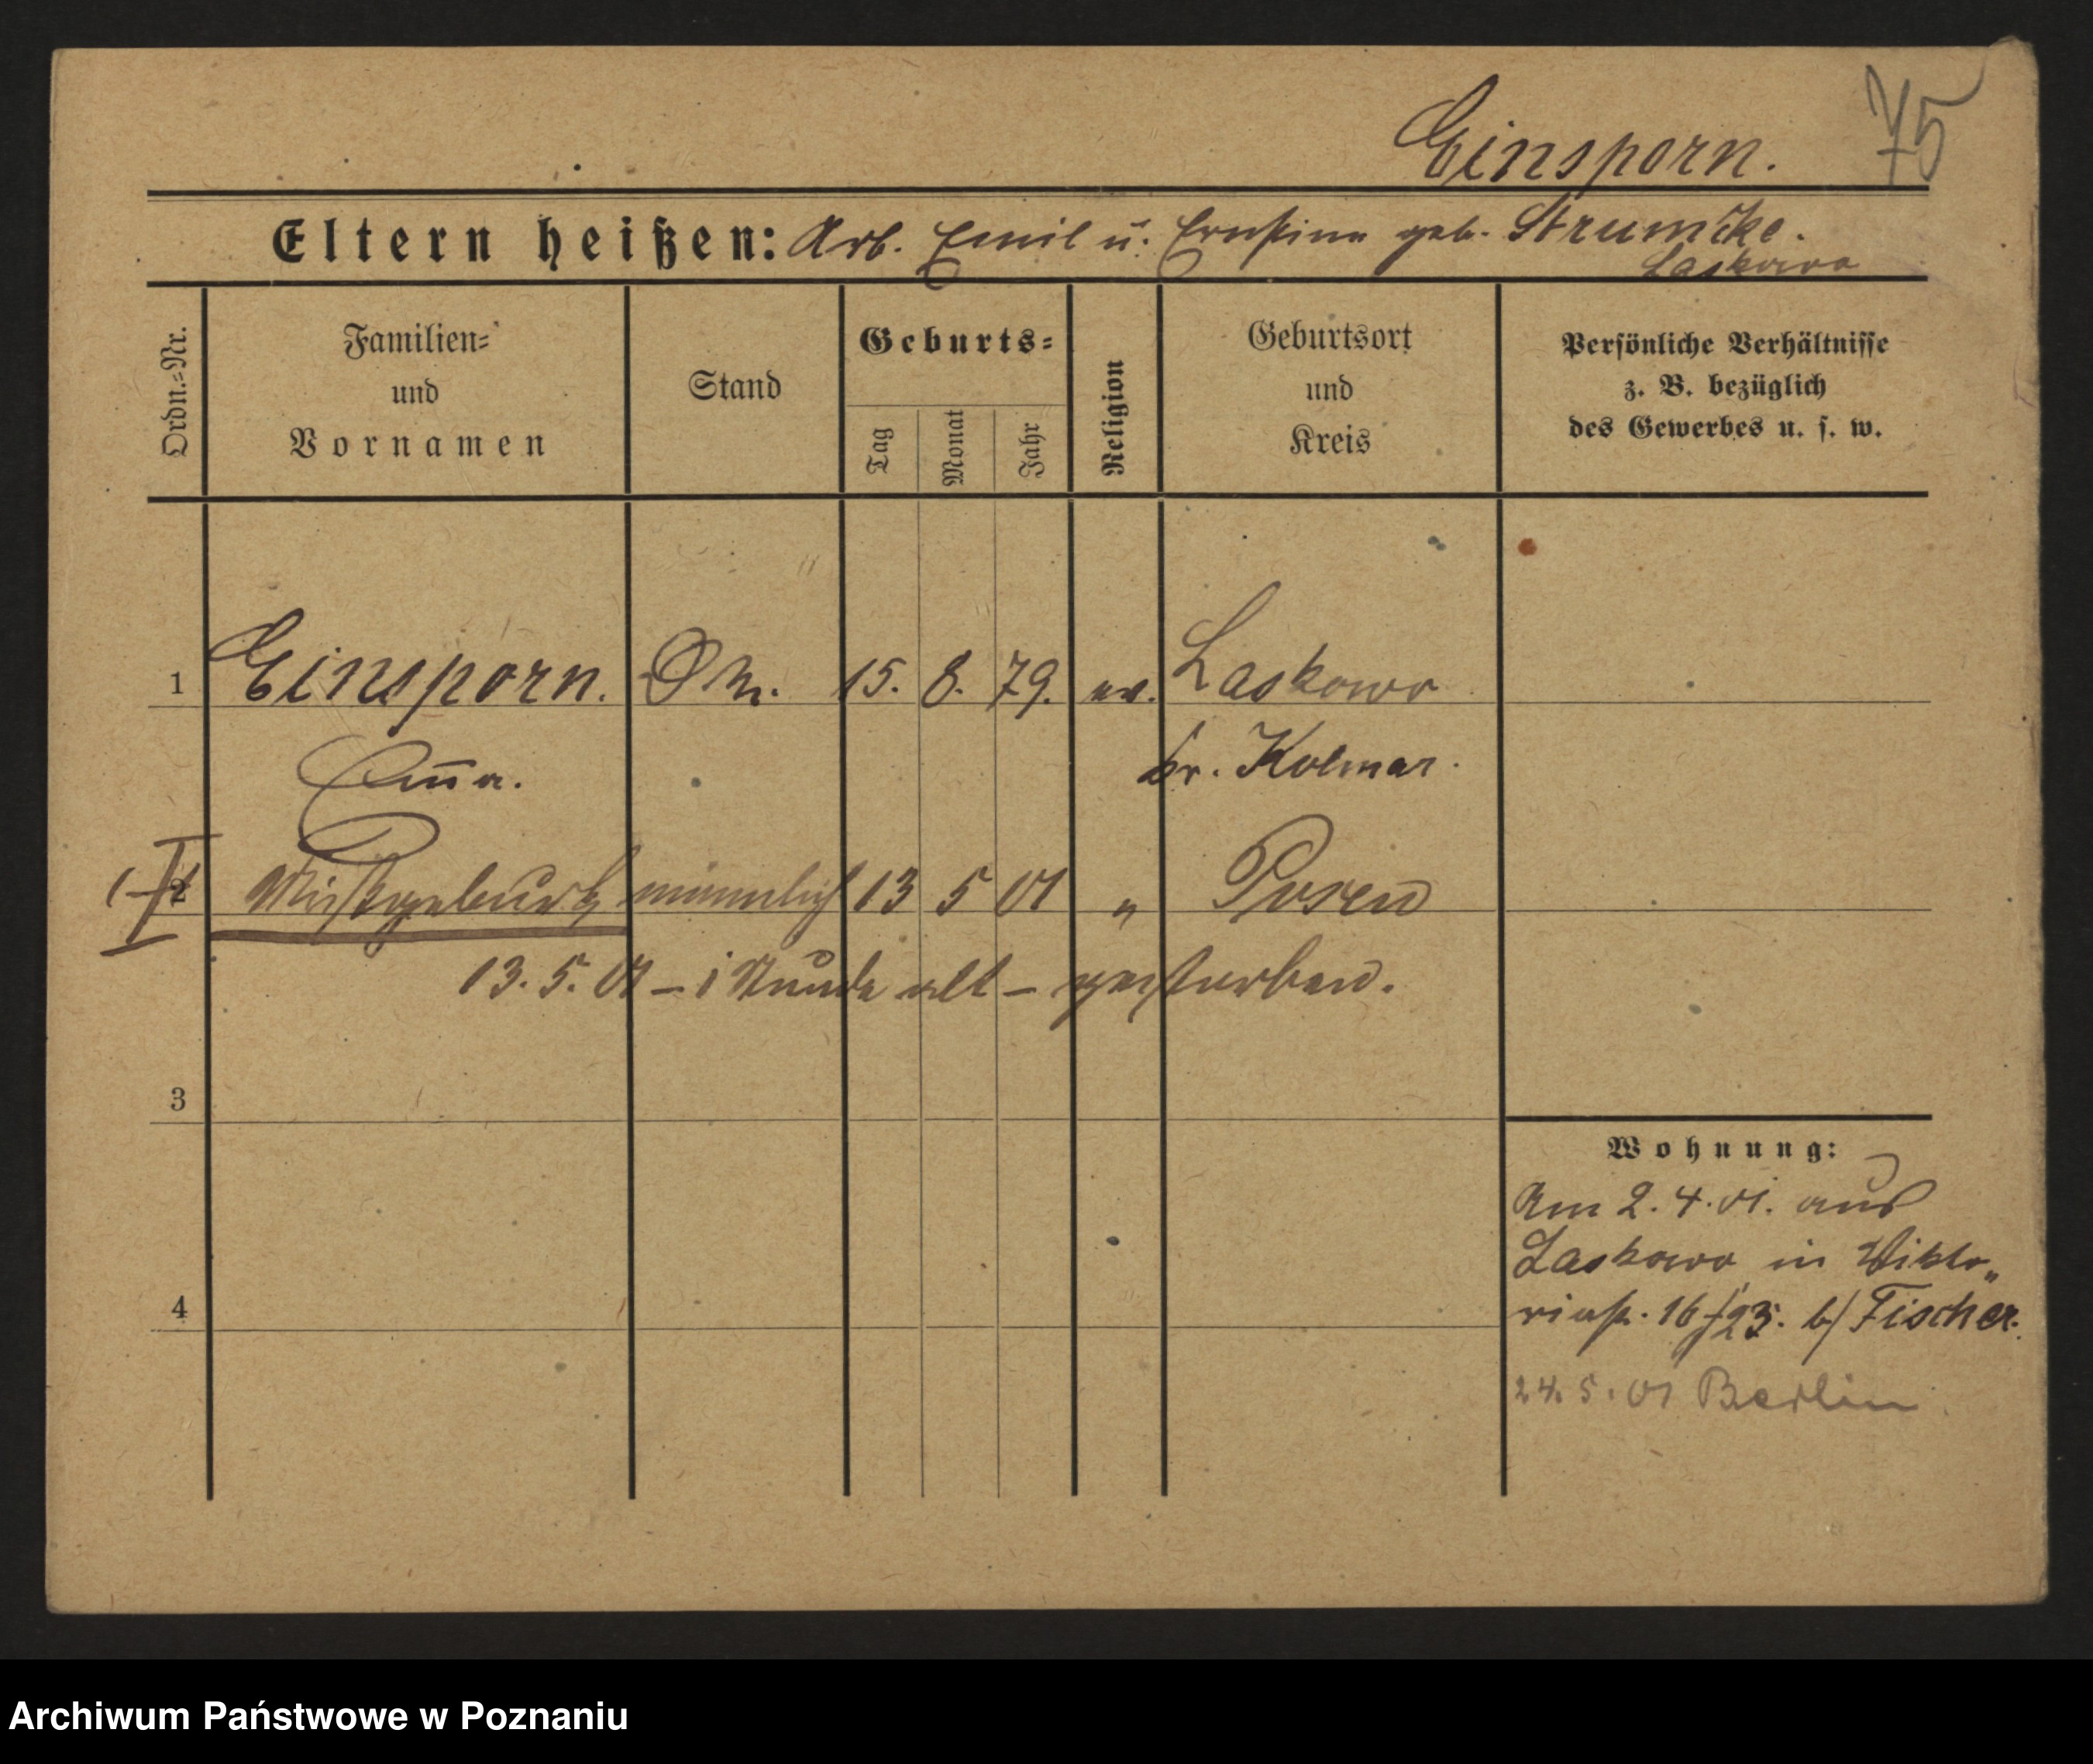 Einsporn. 75
Eltern heißen: Arb. Emil u. Ernstine geb. Strumike.
Laskowo
Ordn.=Nr.
Familien=
und
Vornamen
Stand
Geburts=
Tag
Monat
Jahr
Religion
Geburtsort
und
Kreis
Persönliche Verhältnisse
z. B. bezüglich
des Gewerbes u. s. w.
1 Einsporn. 15. 8. 79. ev. Laskowo
Emma. Kr. Kolmar.
2 männlich 13 5 01 " Posen
13. 5. 01 – 1 Stunde alt – gestorben.
3
4
Wohnung:
Am 2. 4. 01. aus
Laskowo in Vikto„
riastr. 16/23. b/ Fischer.
24. 5. 01 Berlin
Archiwum Państwowe w Poznaniu